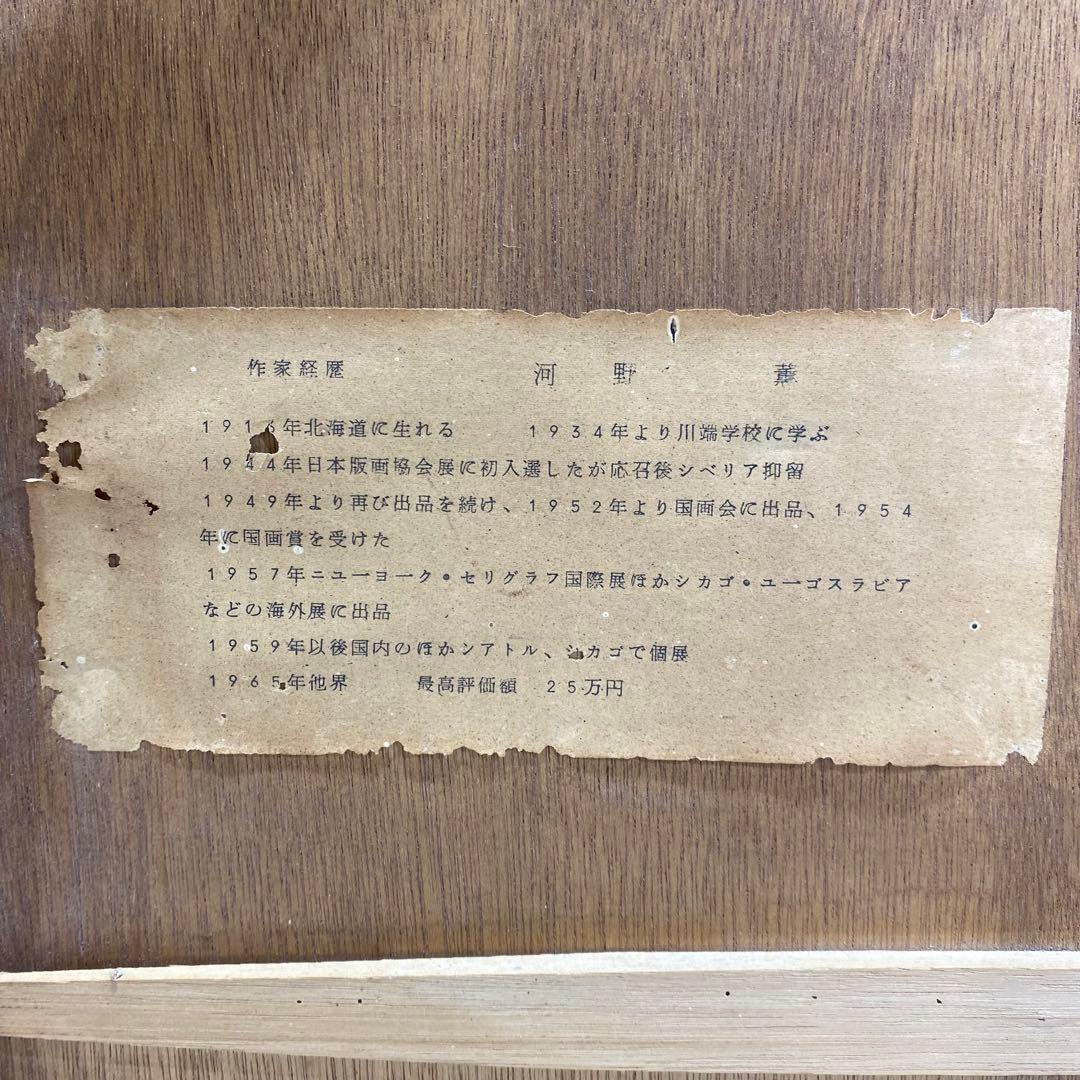 作家経歴 河野 薫
1916年北海道に生れる 1934年より川端学校に学ぶ
1944年日本版画協会展に初入選したが応召後シベリア抑留
1949年より再び出品を続け、1952年より国画会に出品、1954
年に国画賞を受けた
1957年ニューヨーク・セリグラフ国際展ほかシカゴ・ユーゴスラビア
などの海外展に出品
1959年以後国内のほかシアトル、シカゴで個展
1965年他界 最高評価額 25万円